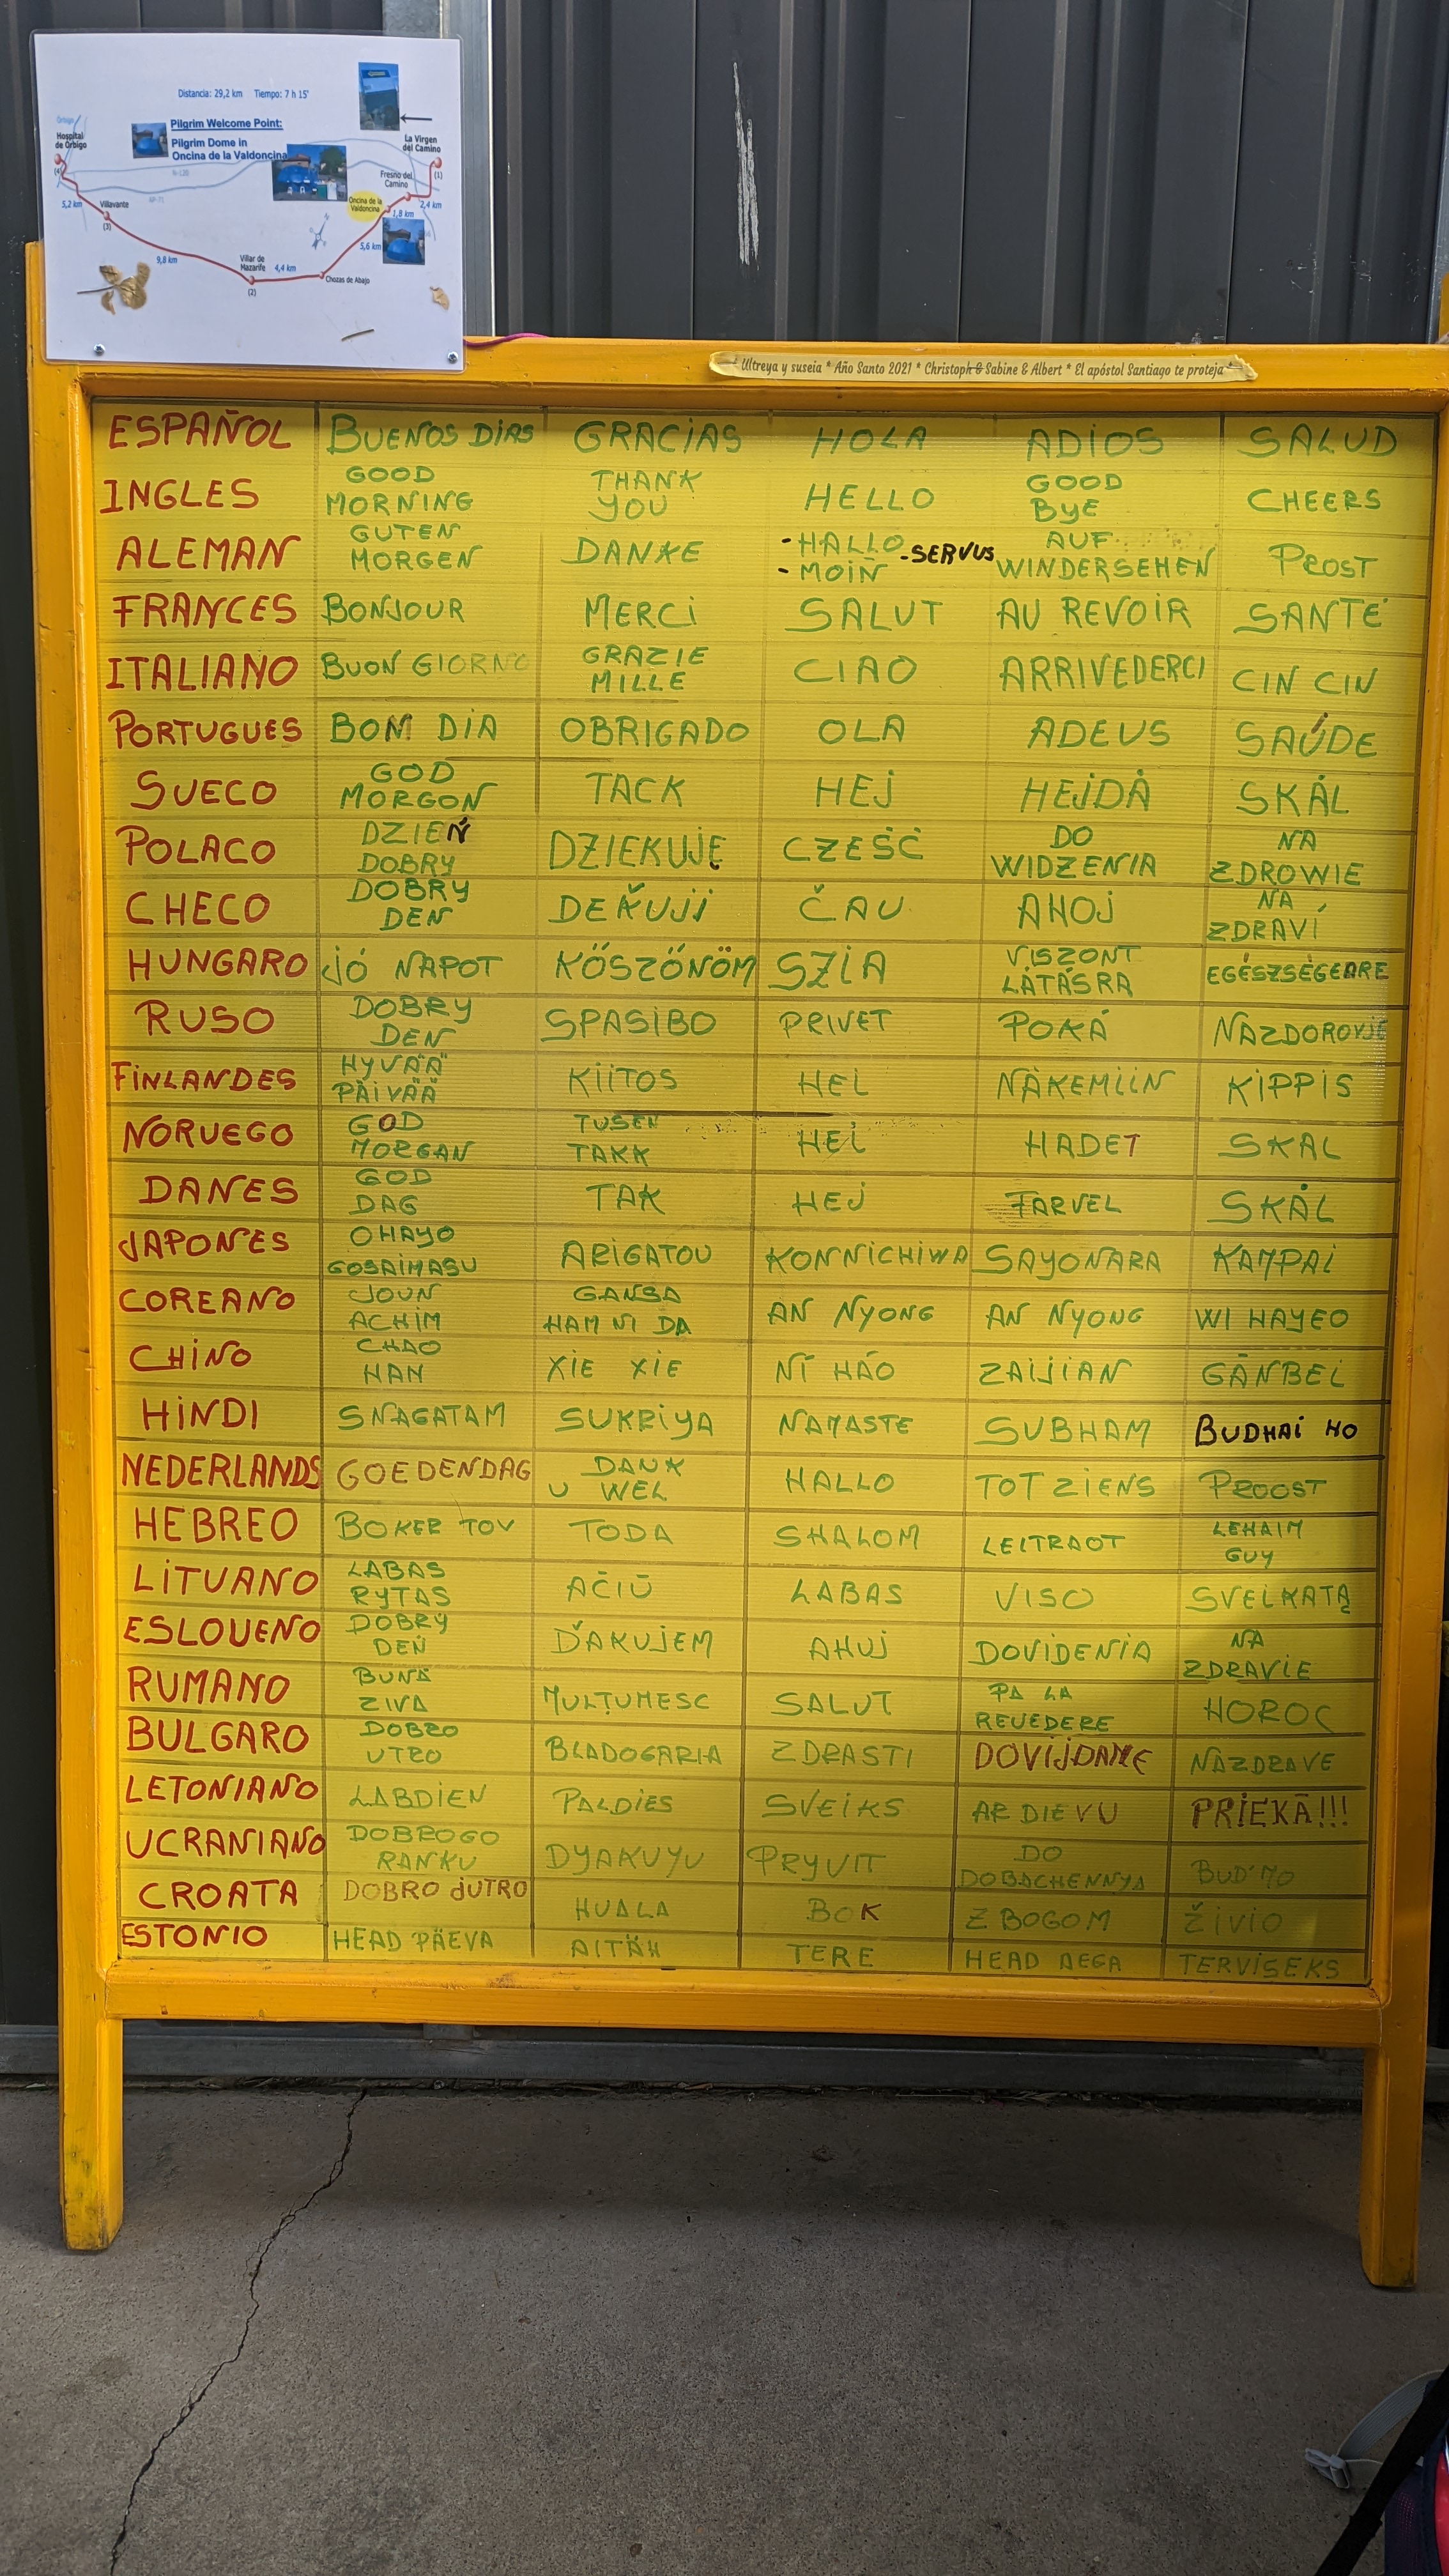 Distancia: 29,2 km Tiempo: 7 h 15'
Pilgrim Welcome Point:
Pilgrim Dome in
Oncina de la Valdoncina
Órbigo
Hospital
de Órbigo
(4)
La Virgen
del Camino
(1)
Fresno del
Camino
N-120
AP-71
Oncina de la
Valdoncina
2,4 km
1,8 km
5,2 km
Villavante
(3)
5,6 km
9,8 km
Villar de
Mazarife
(2)
4,4 km
Chozas de Abajo
Ultreya y suseia * Año Santo 2021 * Christoph & Sabine & Albert * El apóstol Santiago te proteja
ESPAÑOL BUENOS DIAS GRACIAS HOLA ADIOS SALUD
INGLES GOOD MORNING THANK YOU HELLO GOOD BYE CHEERS
ALEMAN GUTEN MORGEN DANKE -HALLO -MOIN -SERVUS AUF WINDERSEHEN PROST
FRANCES BONJOUR MERCI SALUT AU REVOIR SANTÉ
ITALIANO BUON GIORNO GRAZIE MILLE CIAO ARRIVEDERCI CIN CIN
PORTUGUES BOM DIA OBRIGADO OLA ADEUS SAÚDE
SUECO GOD MORGON TACK HEJ HEJDÅ SKÅL
POLACO DZIEŃ DOBRY DZIEKUJĘ CZEŚĆ DO WIDZENIA NA ZDROWIE
CHECO DOBRY DEN DEKUJI ČAU AHOJ NA ZDRAVÍ
HUNGARO JÓ NAPOT KÖSZÖNÖM SZIA VISZONT LÁTÁSRA
RUSO DOBRY DEN SPASIBO PRIVET POKÁ NAZDOROVJE
FINLANDES HYVÄÄ PÄIVÄÄ KIITOS HEI NÄKEMIIN KIPPIS
NORUEGO GOD MORGAN TUSEN TAKK HEI HADET SKAL
DANES GOD DAG TAK HEJ FARVEL SKÅL
JAPONES OHAYO GOSAIMASU ARIGATOU KONNICHIWA SAYONARA KAMPAI
COREANO JOUN ACHIM GANSA HAM NI DA AN NYONG AN NYONG WI HAYEO
CHINO CHAO HAN XIE XIE NĪ HÁO ZAIJIAN GĀNBEI
HINDI SNAGATAM SUKRIYA NAMASTE SUBHAM BUDHAI HO
NEDERLANDS GOEDENDAG DANK U WEL HALLO TOT ZIENS PROOST
HEBREO BOKER TOV TODA SHALOM LEITRAOT LEHAIM GUY
LITUANO LABAS RYTAS AČIŪ LABAS VISO SVEIKATĄ
ESLOUENO DOBRY DEŃ ĎAKUJEM AHUJ DOVIDENIA NA ZDRAVIE
RUMANO BUNĂ ZIVA MULȚUMESC SALUT PA LA REVEDERE HOROC
BULGARO DOBRO UTRO BLADOGARIA ZDRASTI DOVIJDANE NAZDRAVE
LETONIANO LABDIEN PALDIES SVEIKS AR DIEVU PRIEKĀ!!!
UCRANIANO DOBROGO RANKU DYAKUYU PRYVIT DO DOBACHENNYA BUD'MO
CROATA DOBRO JUTRO HUALA BOK Z BOGOM ŽIVIO
ESTONIO HEAD PÄEVA AITÄH TERE HEAD AEGA TERVISEKS